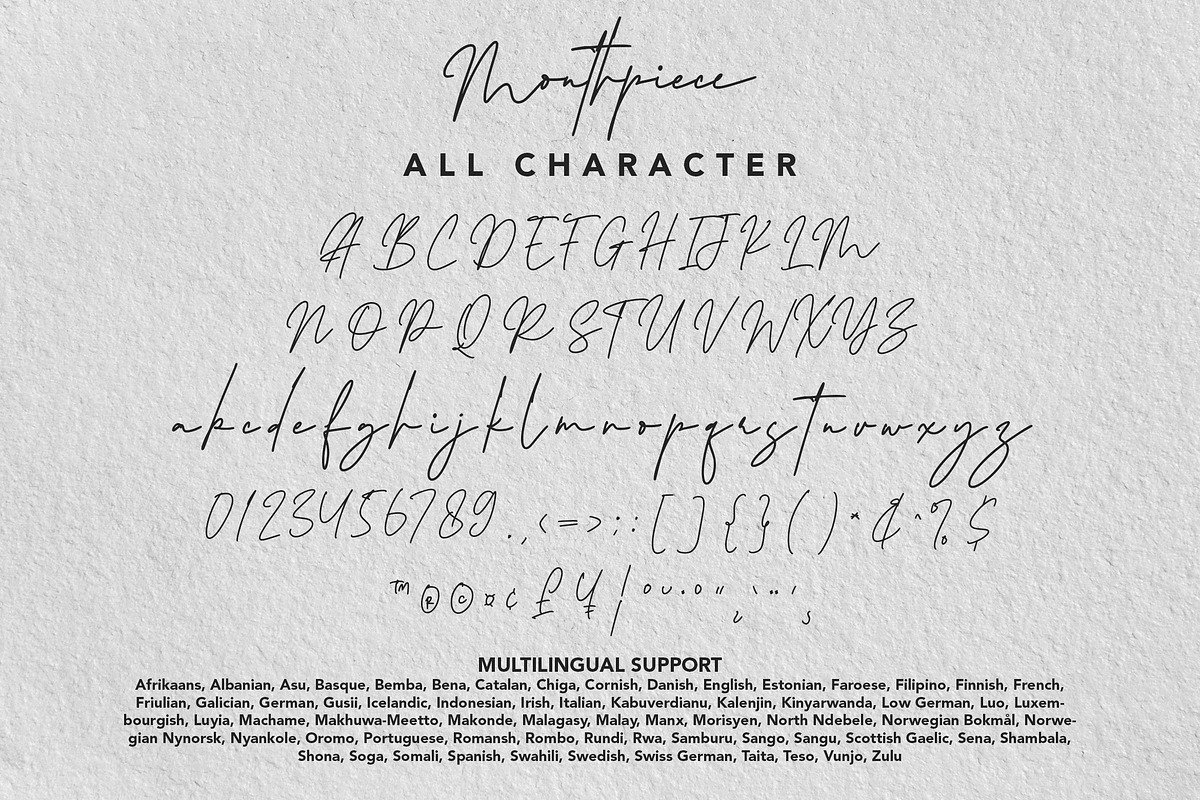 Mouthpiece
ALL CHARACTER
A B C D E F G H I J K L M
N O P Q R S T U V W X Y Z
a b c d e f g h i j k l m n o p q r s t u v w x y z
0 1 2 3 4 5 6 7 8 9 . , < = > ; : [ ] { } ( ) * ₵ ^ % $
™ ® © ¤ ¢ £ ¥ ¦
MULTILINGUAL SUPPORT
Afrikaans, Albanian, Asu, Basque, Bemba, Bena, Catalan, Chiga, Cornish, Danish, English, Estonian, Faroese, Filipino, Finnish, French,
Friulian, Galician, German, Gusii, Icelandic, Indonesian, Irish, Italian, Kabuverdianu, Kalenjin, Kinyarwanda, Low German, Luo, Luxem-
bourgish, Luyia, Machame, Makhuwa-Meetto, Makonde, Malagasy, Malay, Manx, Morisyen, North Ndebele, Norwegian Bokmål, Norwe-
gian Nynorsk, Nyankole, Oromo, Portuguese, Romansh, Rombo, Rundi, Rwa, Samburu, Sango, Sangu, Scottish Gaelic, Sena, Shambala,
Shona, Soga, Somali, Spanish, Swahili, Swedish, Swiss German, Taita, Teso, Vunjo, Zulu